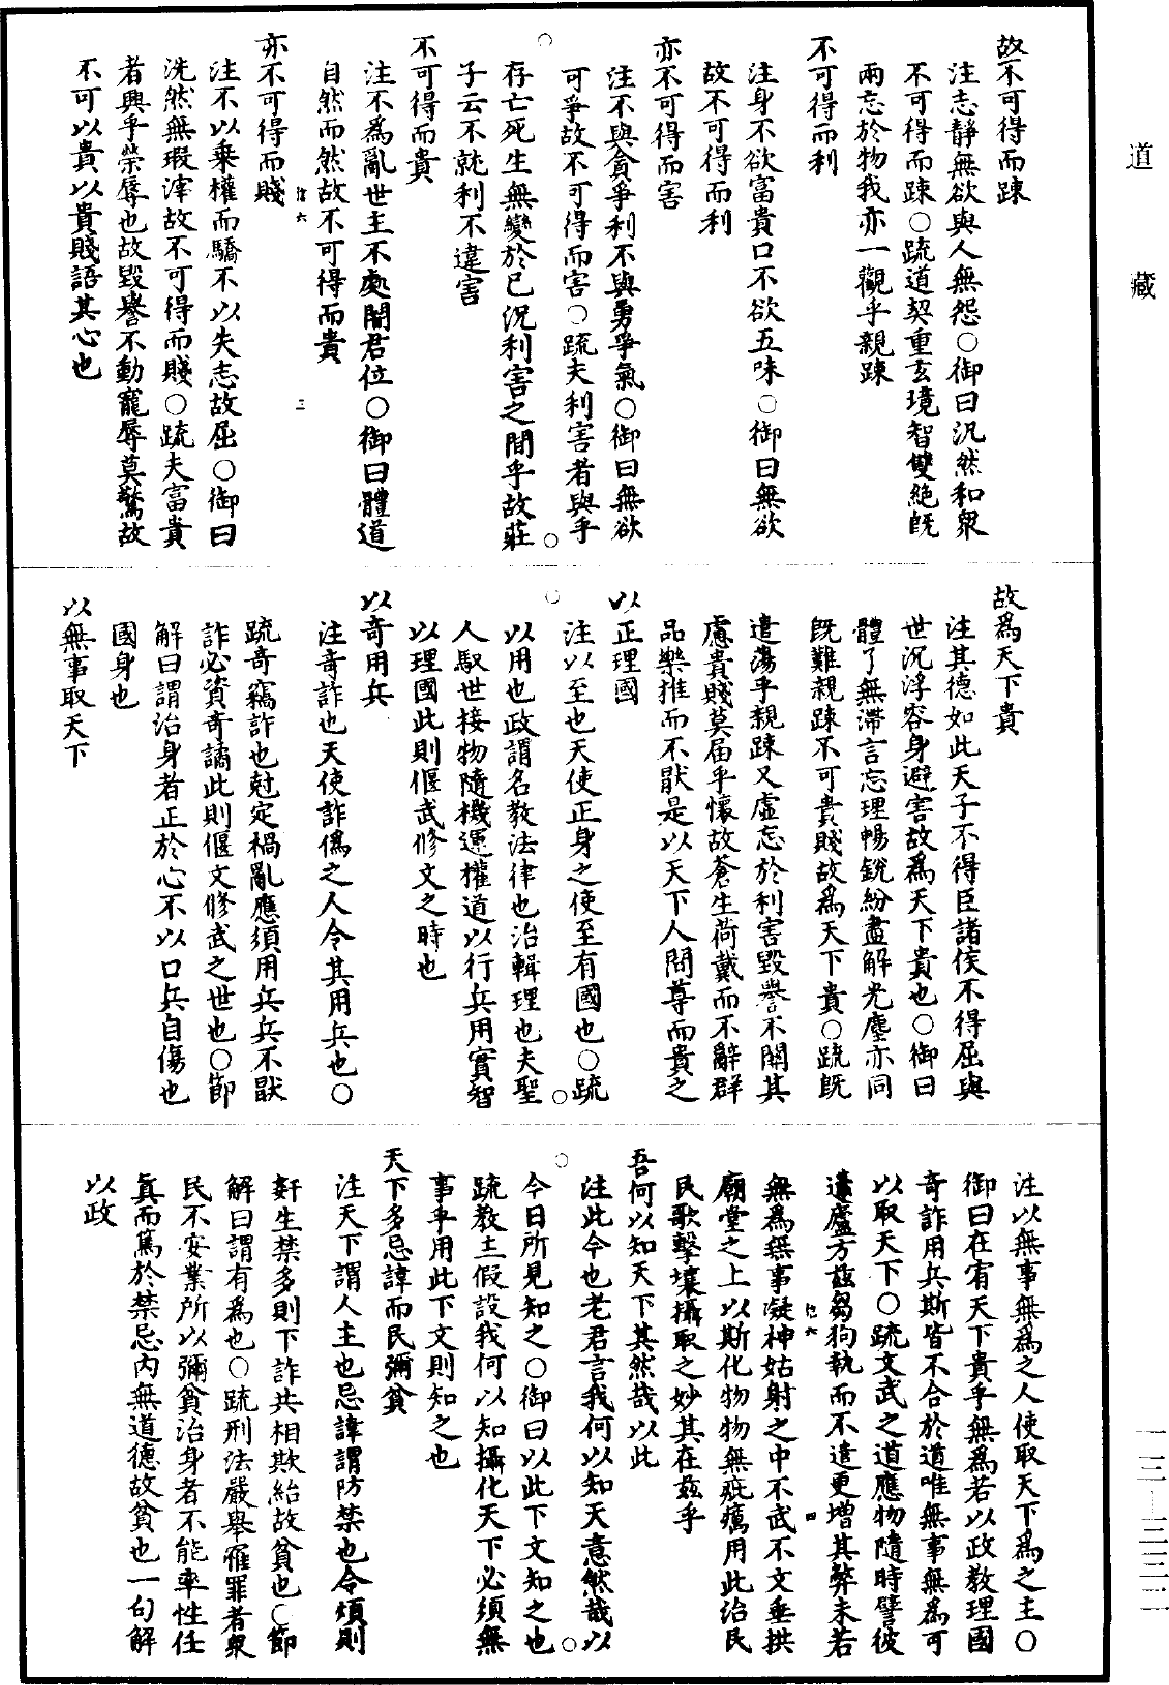 道藏
故不可得而踈
注志靜無欲與人無怨○御曰汎然和衆
不可得而踈○疏道契重玄境智雙絶旣
兩忘於物我亦一觀乎親踈
不可得而利
注身不欲富貴口不欲五味○御曰無欲
故不可得而利
亦不可得而害
注不與貪爭利不與勇爭氣○御曰無欲
可爭故不可得而害○疏夫利害者與乎
存亡死生無變於已況利害之間乎故莊
子云不就利不違害
不可得而貴
注不爲亂世主不處闇君位○御曰體道
自然而然故不可得而貴
三
亦不可得而賤
注不以乗權而驕不以失志故屈○御曰
洗然無瑕滓故不可得而賤○疏夫富貴
者興乎榮辱也故毀譽不動寵辱莫驚故
不可以貴以貴賤語其心也
故爲天下貴
注其德如此天子不得臣諸侯不得屈與
世沉浮容身避害故爲天下貴也○御曰
體了無滯言忘理暢銳紛盡解光塵亦同
旣難親踈不可貴賤故爲天下貴○疏旣
遣蕩乎親踈又虛忘於利害毀譽不關其
慮貴賤莫届乎懷故蒼生荷戴而不辭群
品樂推而不猒是以天下人間尊而貴之
以正理國
注以至也天使正身之使至有國也○疏
以用也政謂名敎法律也治輯理也夫聖
人馭世接物隨機運權道以行兵用實智
以理國此則偃武修文之時也
以奇用兵
注奇詐也天使詐僞之人令其用兵也○
疏奇竊詐也尅定禍亂應須用兵兵不猒
詐必資奇譎此則偃文修武之世也○節
解曰謂治身者正於心不以口兵自傷也
國身也
以無事取天下
注以無事無爲之人使取天下爲之主○
御曰在宥天下貴乎無爲若以政敎理國
奇詐用兵斯皆不合於道唯無事無爲可
以取天下○疏文武之道應物隨時譬彼
蘧廬方茲芻狗執而不遣更增其弊未若
無爲無事凝神姑射之中不武不文垂拱
四
廟堂之上以斯化物物無疵癘用此治民
民歌擊壤攝取之妙其在兹乎
吾何以知天下其然哉以此
注此今也老君言我何以知天意然哉以
今日所見知之○御曰以此下文知之也
疏敎主假設我何以知攝化天下必須無
事乎用此下文則知之也
天下多忌諱而民彌貧
注天下謂人主也忌諱謂防禁也令煩則
姧生禁多則下詐共相欺紿故貧也○節
解曰謂有爲也○疏刑法嚴舉罹罪者衆
民不安業所以彌貧治身者不能率性任
眞而篤於禁忌内無道德故貧也一句解
以政
一三—三三二